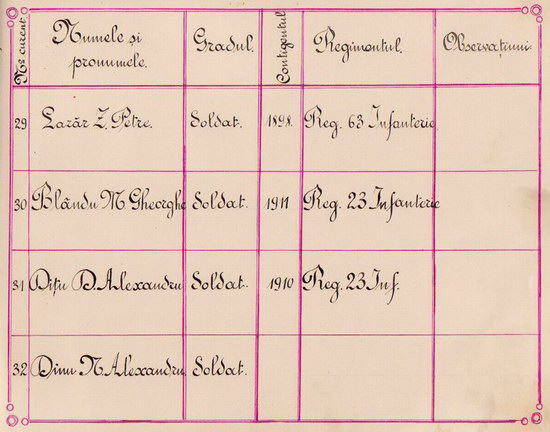 Nº curent. Numele și pronumele. Gradul. Contigentul Regimentul. Observațiuni
29 Lazăr Z. Petre. Soldat. 1898. Reg. 63 Infanterie
30 Blându M Gheorghe Soldat. 1911 Reg. 23 Infanterie
31 Dițu D. Alexandru Soldat. 1910 Reg. 23 Inf.
32 Dinu N Alexandru Soldat.